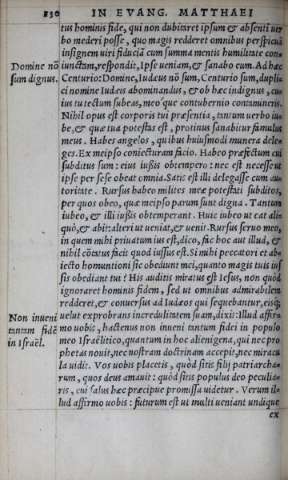 830 IN EVANG. MATTHAEI
tus hominis fide, qui non dubitaret ipsum & absenti ver
bo mederi posse, quo magis redderet omnibus perspicuã
insignem uiri fiduciã cum summa mentis humilitate con-
Domine nõ iunctam, respondit, Ipse ueniam, & sanabo eum. Ad hæc
sum dignus. Centurio: Domine, Iudeus nõ sum, Centurio sum, dupli
ci nomine Iudeis abominandus, & ob hæc indignus, cu
ius tu tectum subeas, meoq́ue contubernio contamineris.
Nihil opus est corporis tui præsentia, tantum uerbo iu-
be, & quæ tua potestas est, protinus sanabitur famulus
meus. Habes angelos, quibus huiusmodi munera dele-
ges. Ex meipso coniecturam facio. Habeo præfectum cui
subditus sum: eius iussis obtempero: nec est necesse ut
ipse per sese obeat omnia. Satis est illi delegasse cum au-
toritate. Rursus habeo milites meæ potestati subditos,
per quos obeo, quæ meipso parum sunt digna. Tantum
iubeo, & illi iussis obtemperant. Huic iubeo ut eat ali-
quò, & abit: alteri ut ueniat, & uenit. Rursus seruo meo,
in quem mihi priuatum ius est, dico, fac hoc aut illud, &
nihil cõtatus facit quod iussus est. Si mihi peccatori et ab-
iecto homuntioni sic obediunt mei, quanto magis tuis ius
sis obediant tui? His auditis miratus est Iesus, non quòd
ignoraret hominis fidem, sed ut omnibus admirabilem
redderet, & conuersus ad Iudæos qui sequebantur, eisq́;
Non inueni uelut exprobrans incredulitatem suam, dixit: Illud affir-
tantam fidẽ mo uobis, hactenus non inueni tantam fidei in populo
in Israël. meo Israëlitico, quantum in hoc alienigena, qui nec pro
phetas nouit, nec nostram doctrinam accepit, nec miracu
la uidit. Vos uobis placetis, quòd sitis filij patriarcha-
rum, quos deus amauit: quòd sitis populus deo peculia-
ris, cui salus hæc præcipue promissa uidetur. Verum il-
lud affirmo uobis: futurum est ut multi ueniant undique
ex